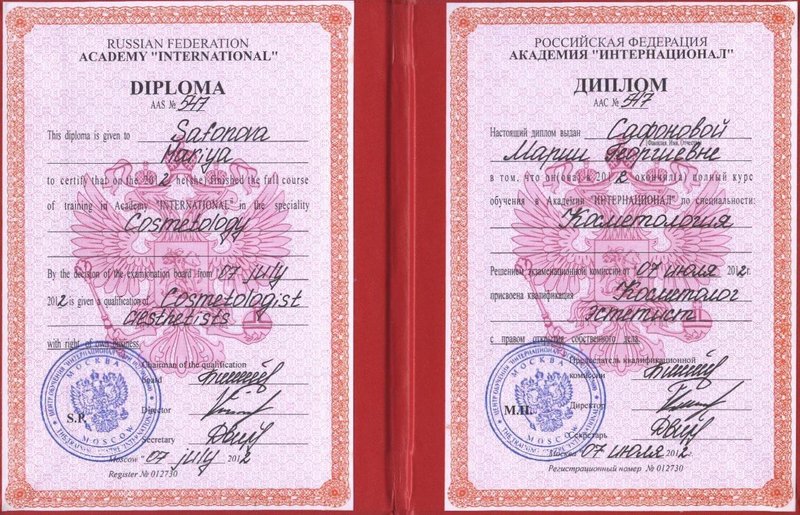 RUSSIAN FEDERATION
ACADEMY "INTERNATIONAL"
DIPLOMA
AAS № 547
This diploma is given to Safonova
Mariya
to certify that on the 2012 he(she) finished the full course
of training in Academy "INTERNATIONAL" in the speciality
Cosmetology
By the decision of the examination board from 07 july
2012 is given a qualification of Cosmetologist
aesthetists
with right of own business
Chairman of the qualification
board
Director
S.P.
Secretary
Moscow "07 july 2012
Register № 012730
МОСКВА
MOSCOW
РОССИЙСКАЯ ФЕДЕРАЦИЯ
АКАДЕМИЯ "ИНТЕРНАЦИОНАЛ"
ДИПЛОМ
ААС № 547
Настоящий диплом выдан Сафоновой
(Фамилия, Имя, Отчество)
Марии Георгиевне
в том, что он(она) в 2012 окончил(а) полный курс
обучения в Академии "ИНТЕРНАЦИОНАЛ" по специальности:
Косметология
Решением экзаменационной комиссии от 07 июля 2012г.
присвоена квалификация Косметолог
эстетист
с правом открытия собственного дела
Председатель квалификационной
комиссии
Директор
М.П.
Секретарь
Москва 07 июля 2012
Регистрационный номер № 012730
МОСКВА
MOSCOW